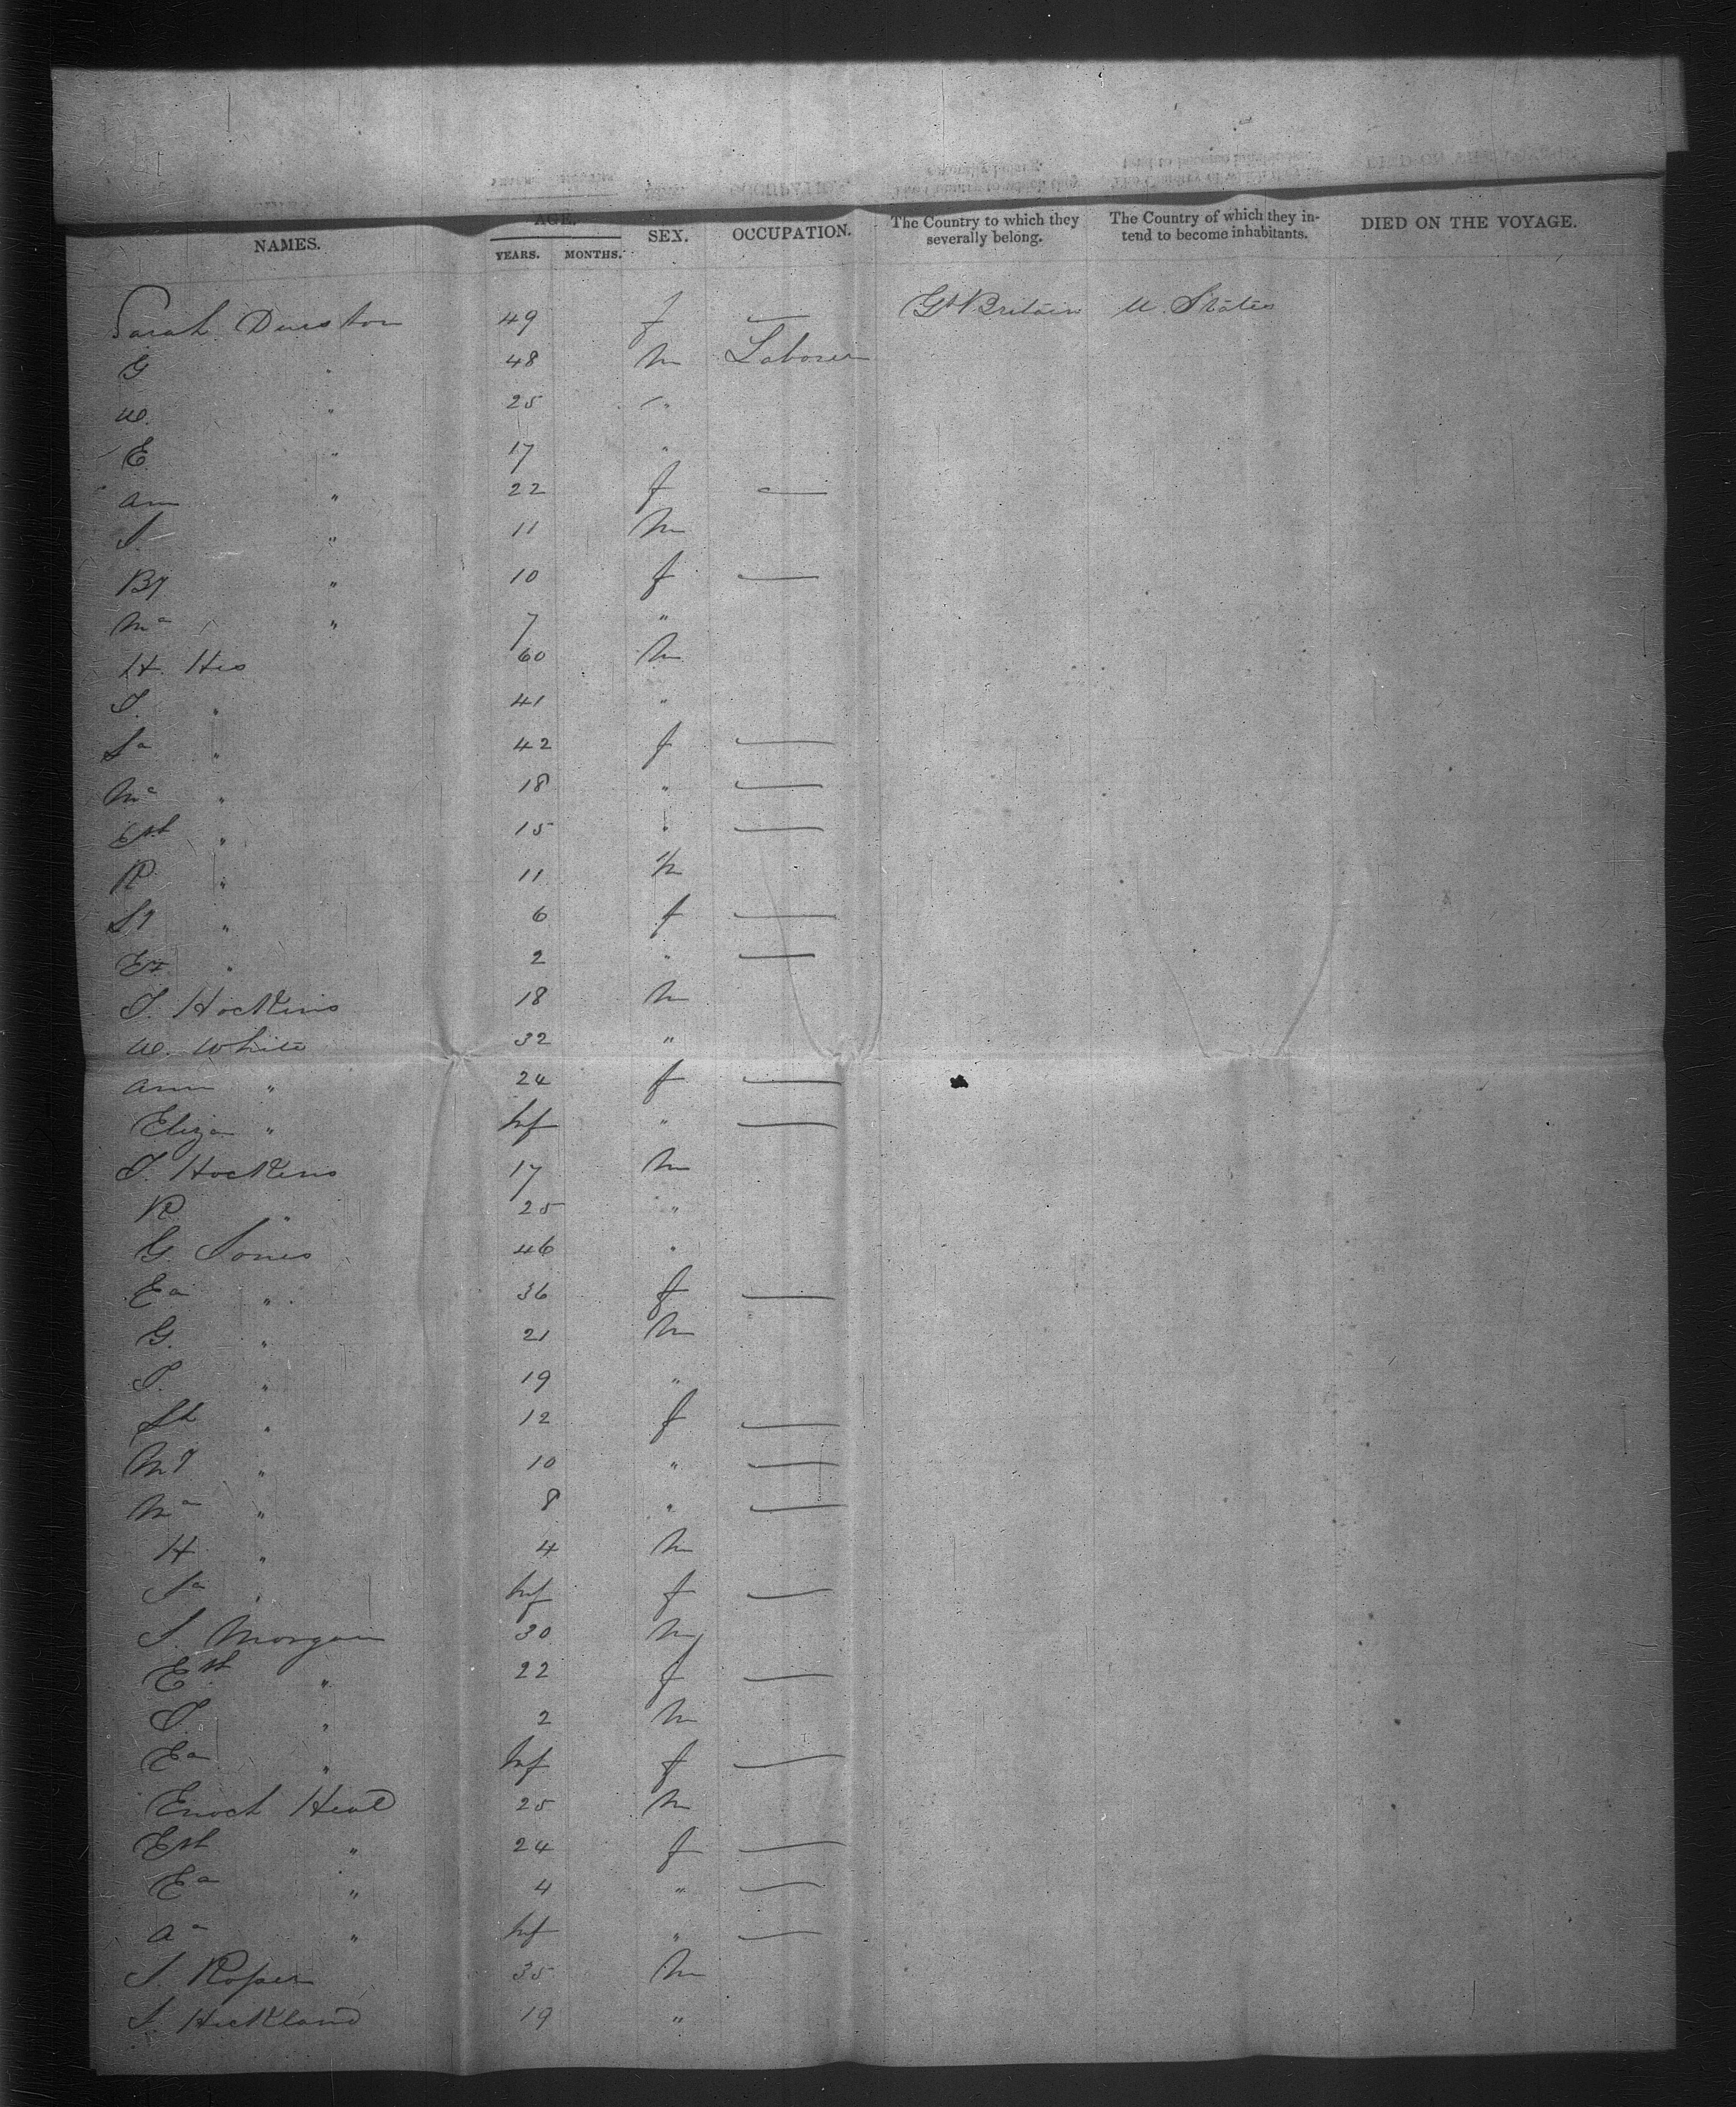 NAMES. AGE. SEX. OCCUPATION. The Country to which they severally belong. The Country of which they intend to become inhabitants. DIED ON THE VOYAGE.
YEARS. MONTHS.
Sarah Dunston 49 f — Gt Britain U. States
G " 48 m Laborer
W. " 25 "
E " 17 "
Ann " 22 f —
J. " 11 m
By " 10 f —
Ma " 7 "
H. 60 m
J " 41 "
Sa " 42 f —
Ma " 18 " —
Eth " 15 " —
R " 11 m
Sy " 6 f —
" 2 " —
J. Hockins 18 m
W. White 32 "
Ann " 24 f —
Eliza " Inf " —
J. Hockins 17 m
R " 25 "
G. Jones 46 "
Ea " 36 f —
G. " 21 m
J. " 19 "
Sh " 12 f —
My " 10 " —
Ma " 8 " —
H " 4 m
Sa " Inf f —
J. Morgan 30 m
Eth " 22 f —
J. " 2 m
Ea " Inf f —
Enoch Heal 25 m
Eth " 24 f —
Ea " 4 " —
Aa " Inf " —
J. Roper 35 m
J. Hickland 19 "